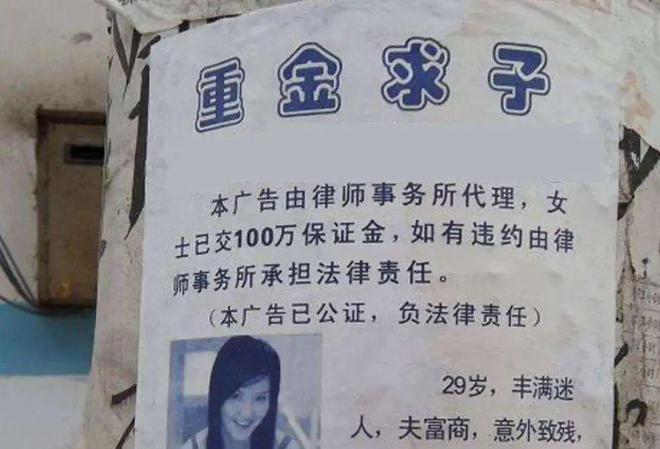 重金求子
本广告由律师事务所代理，女
士已交100万保证金，如有违约由律
师事务所承担法律责任。
（本广告已公证，负法律责任）
29岁，丰满迷
人，夫富商，意外致残，